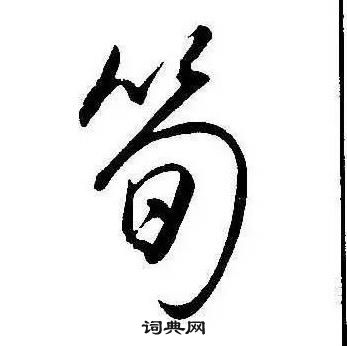 筍
词典网